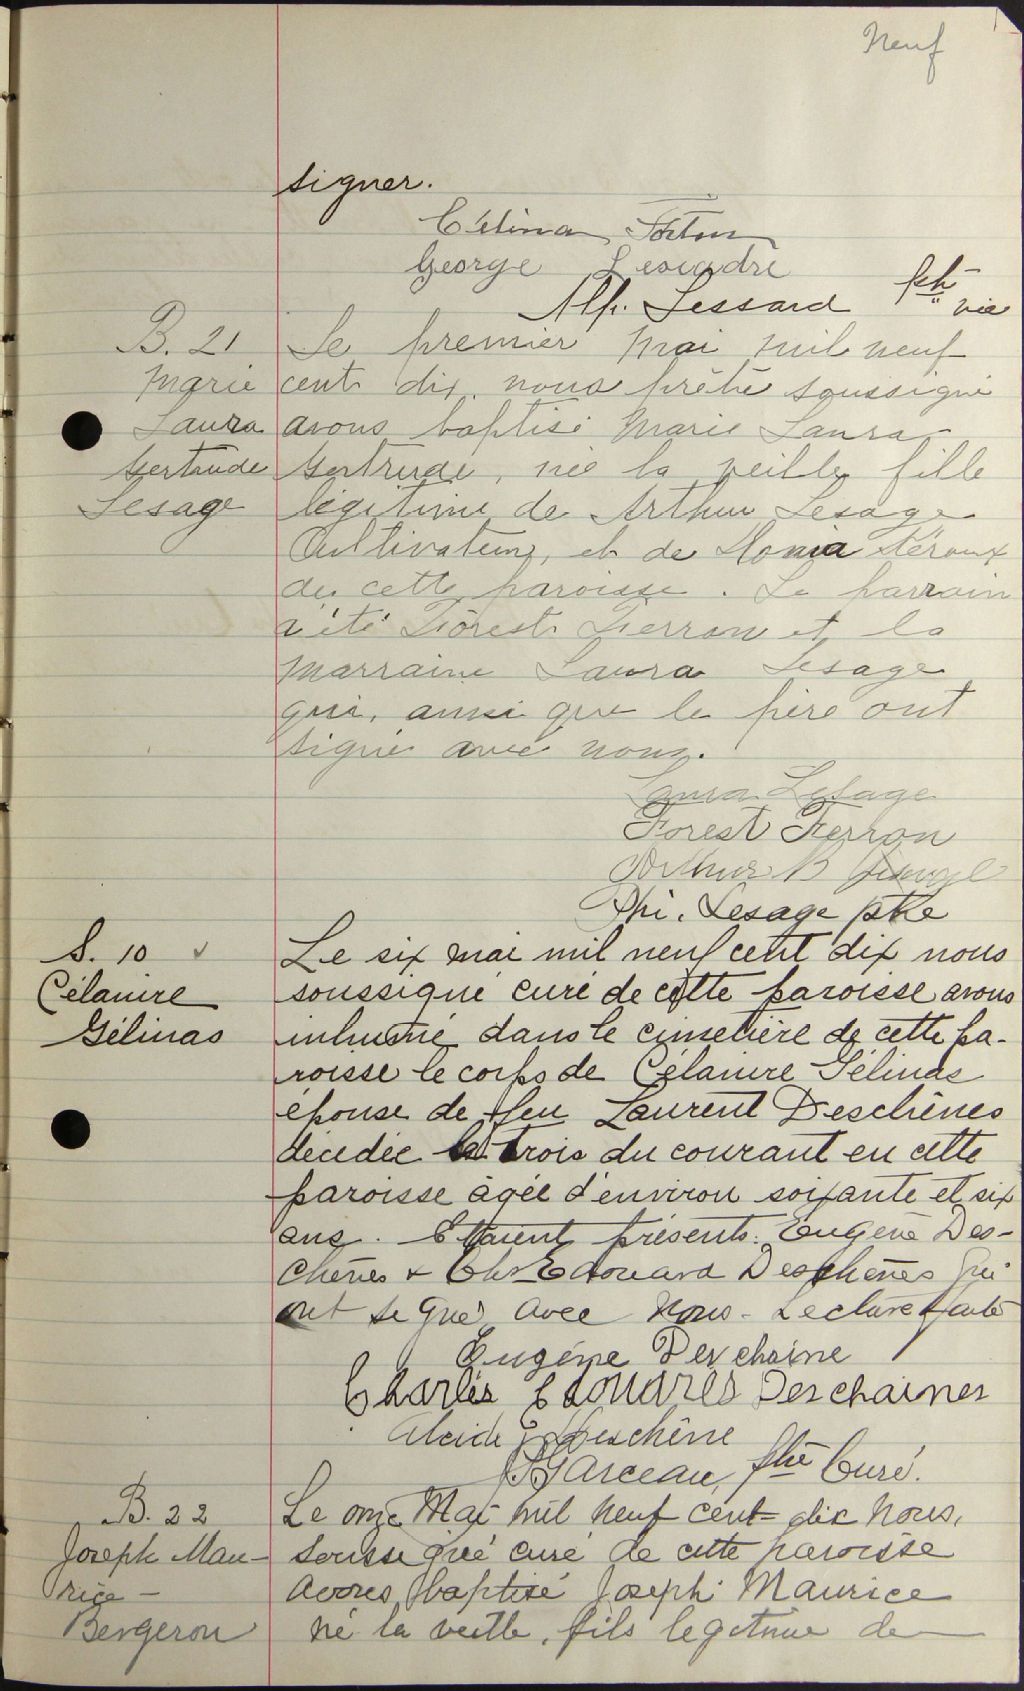 Neuf
signer.
Célina
George
Alp. Lessard ptre vic
B. 21
Marie
Laura
Gertrude
Lesage
Le premier Mai mil neuf
cent dix, nous prêtre soussigné
avons baptisé Marie Laura
Gertrude, née la veille, fille
légitime de Arthur Lesage
Cultivateur, et de Héroux
de cette paroisse. Le parrain
a été Forest Ferron et la
marraine Laura Lesage
qui, ainsi que le père ont
signé avec nous.
Laura Lesage
Forest Ferron
Arthur
Phi. Lesage ptre
S. 10
Célanire
Gélinas
Le six mai mil neuf cent dix nous
soussigné curé de cette paroisse avons
inhumé dans le cimetière de cette pa-
roisse le corps de Célanire Gélinas
épouse de feu Laurent Deschênes
décédée le trois du courant en cette
paroisse âgée d'environ soixante et six
ans. Etaient présents: Eugène Des-
chênes & Chs Edouard Deschênes qui
ont signé avec nous. Lecture faite
Eugène Deschaine
Charles Edouard Deschaines
Alcide Deschêne
Garceau, ptre Curé.
B. 22
Joseph Mau-
rice
Bergeron
Le onze Mai mil neuf cent dix nous,
soussigné curé de cette paroisse
avons baptisé Joseph Maurice
né la veille, fils legitime de